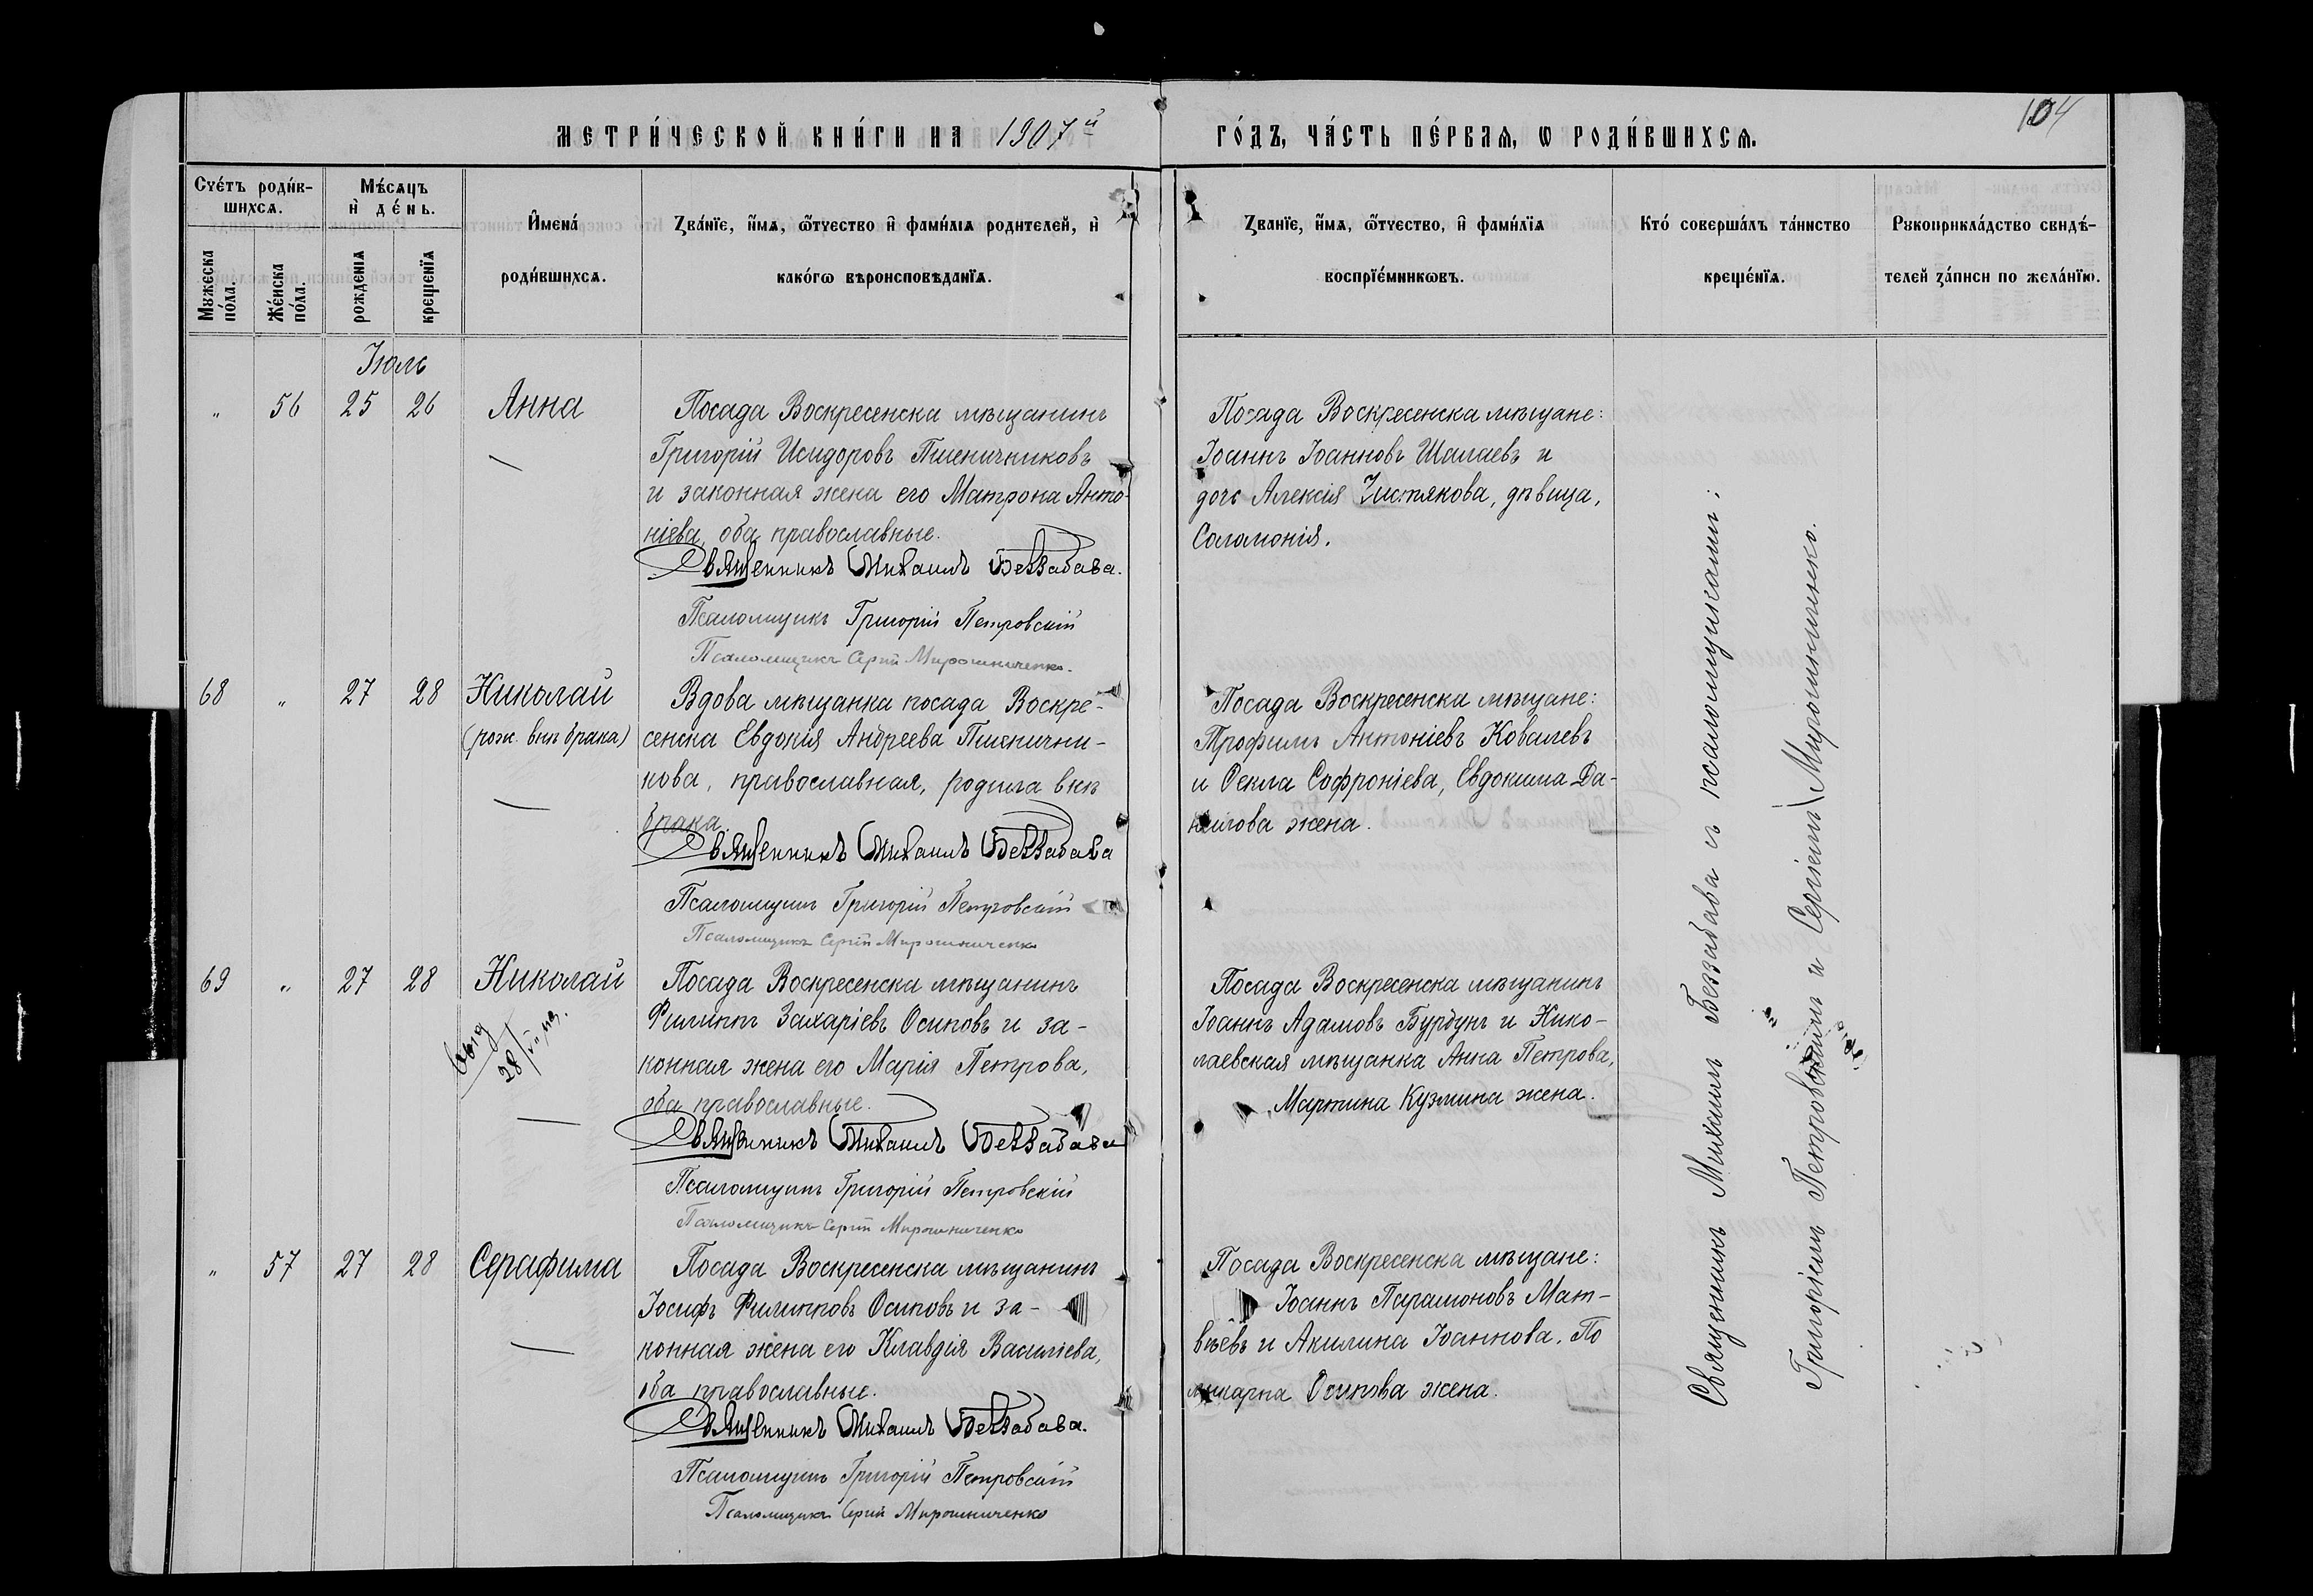 МЕТРИ́ЧЕСКОЙ КНИ́ГИ НА 1907й
ГО́ДЪ, ЧА́СТЬ ПЕ́РВАѦ, Ѡ РОДИ́ВШИХСѦ.
104
Сче́тъ роди́вшихсѧ.
Мѣ́сѧцъ и҆ де́нь.
Мꙋжеска по́ла.
Же́нска по́ла.
рожденїѧ
крещенїѧ
И҆мена́ роди́вшихсѧ.
Зва́нїе, и҆́мѧ, ѻ҆́тчество и҆ фами́лїѧ родителей, и҆ како́гѡ вѣроисповѣданїѧ.
Зва́нїе, и҆́мѧ, ѻ҆́тчество, и҆ фами́лїѧ воспрїе́мникѡвъ.
Кто́ соверша́лъ та́инство креще́нїѧ.
Рꙋкоприкла́дство свидѣ́телей за́писи по жела́нїю.
Іюль
„ 56 25 26 Анна
Посада Воскресенска мѣщанинъ
Григорій Исидоровъ Пшеничниковъ
и законная жена его Матрона Анто-
ніева, оба православные.
Священникъ Михаилъ Беззабава.
Псаломщикъ Григорій Петровскій
Псаломщикъ Сергій Мирошниченко.
Посада Воскресенска мѣщане:
Іоаннъ Іоанновъ Шалаевъ и
дочь Алексія Чистякова, дѣвица,
Соломонія.
68 „ 27 28 Николай
(рож. внѣ брака)
Вдова мѣщанка посада Воскре-
сенска Евдокія Андреева Пшенични-
кова, православная, родила внѣ
брака.
Священникъ Михаилъ Беззабава
Псаломщикъ Григорій Петровскій
Псаломщикъ Сергій Мирошниченко
Посада Воскресенска мѣщане:
Трофимъ Антоніевъ Ковалевъ
и Ѳекла Софроніева, Евдокима Да-
нилова жена.
69 „ 27 28 Николай
28
Посада Воскресенска мѣщанинъ
Филиппъ Захаріевъ Осиповъ и за-
конная жена его Марія Петрова,
оба православные.
Священникъ Михаилъ Беззабава
Псаломщикъ Григорій Петровскій
Псаломщикъ Сергій Мирошниченко
Посада Воскресенска мѣщанинъ
Іоаннъ Адамовъ Бурдунъ и Нико-
лаевская мѣщанка Анна Петрова,
Мартина Кузмина жена.
„ 57 27 28 Серафима
Посада Воскресенска мѣщанинъ
Іосифъ Филипповъ Осиповъ и за-
конная жена его Клавдія Василіева,
оба православные.
Священникъ Михаилъ Беззабава.
Псаломщикъ Григорій Петровскій
Псаломщикъ Сергій Мирошниченко
Посада Воскресенска мѣщане:
Іоаннъ Парамоновъ Мат-
вѣевъ и Акилина Іоаннова, По
ликарпа Осипова жена.
Священникъ Михаилъ Беззабава съ псаломщиками:
Григоріемъ Петровскимъ и Сергіемъ Мирошниченко.